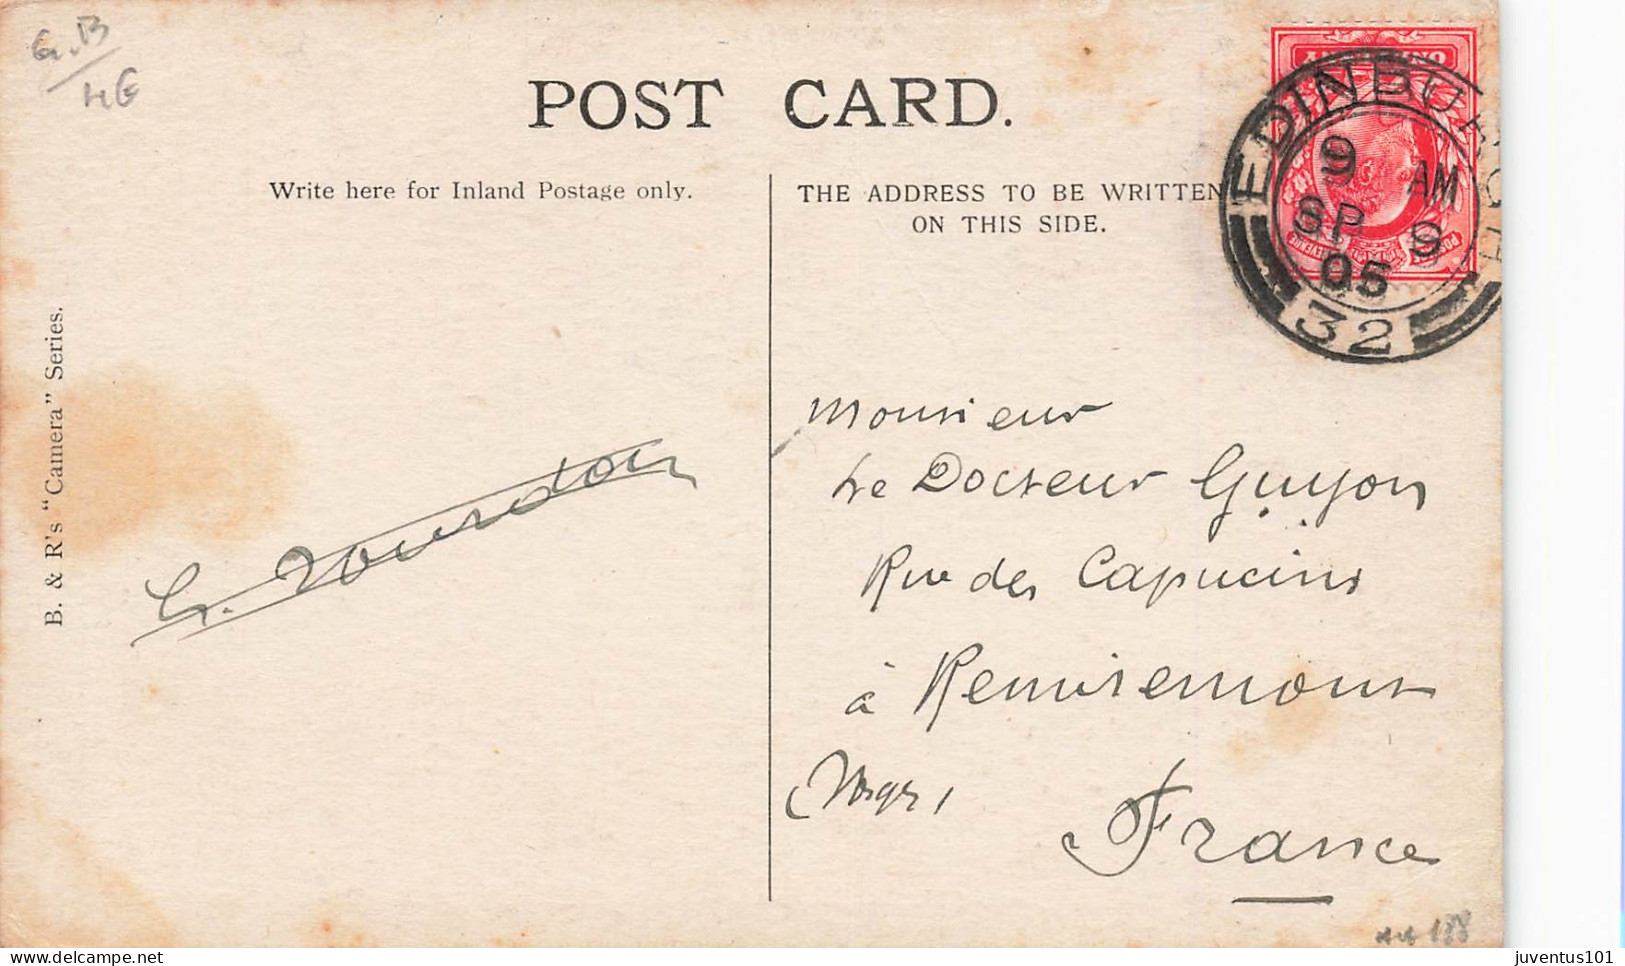 G.B
POST CARD.
Write here for Inland Postage only.
THE ADDRESS TO BE WRITTEN
ON THIS SIDE.
EDINBURGH
9 AM
SP 9
05
32
B. & R's "Camera" Series.
Monsieur
Le Docteur Guyon
Rue des Capucins
à Remiremont
(Vosges)
France
188
juventus101